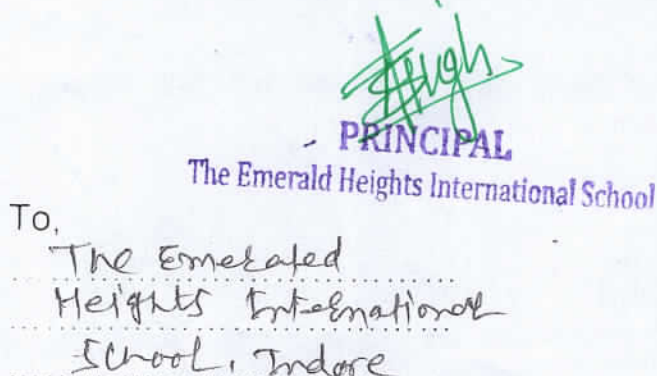 PRINCIPAL
The Emerald Heights International School
To,
The Emerated
Heights International
School, Indore